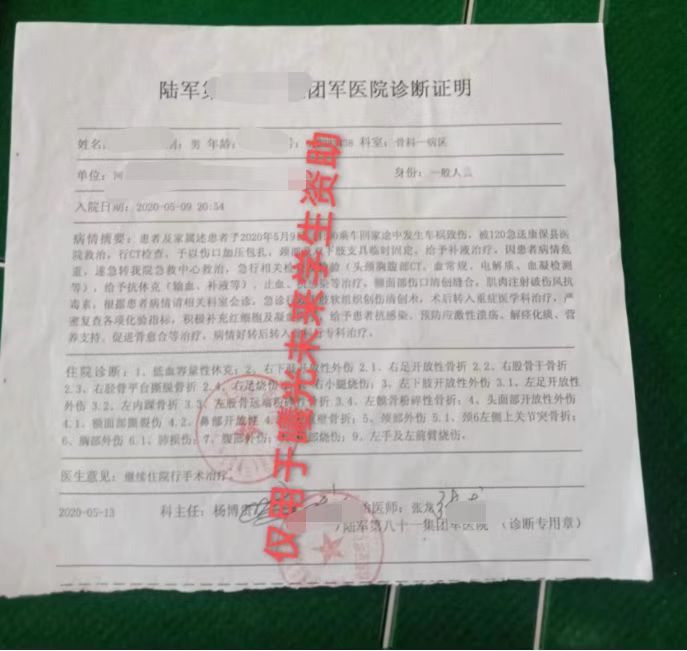 陆军第 团军医院诊断证明
姓名: 男 年龄: 58 科室:骨科一病区
单位:河 身份:一般人员
入院日期:2020-05-09 20:54
病情摘要:患者及家属述患者于2020年5月9日 00乘车回家途中发生车祸致伤,被120急送康保县医
院救治,行CT检查,予以伤口加压包扎,颈部及双下肢支具临时固定,给予补液治疗,因患者病情危
重,遂急转我院急救中心救治,急行相关检 验(头颈胸腹部CT、血常规、电解质、血凝检测
等),给予抗休克(输血、补液等),止血、抗感染等治疗,额面部伤口清创缝合,肌肉注射破伤风抗
毒素,根据患者病情请相关科室会诊,急诊行 肢软组织创伤清创术,术后转入重症医学科治疗,严
密复查各项化验指标,积极补充红细胞及凝血 ,给予患者抗感染、预防应激性溃疡、解痉化痰、营
养支持、促进骨愈合等治疗,病情好转后转入 专科治疗。
住院诊断:1、低血容量性休克;2、右下肢开放性外伤 2.1、右足开放性骨折 2.2、右股骨干骨折
2.3、右胫骨平台撕脱骨折 2.4、右足烧伤 右小腿烧伤;3、左下肢开放性外伤 3.1、左足开放性
外伤 3.2、左内踝骨折 3.3、左股骨远端 骨折 3.4、左髌骨粉碎性骨折;4、头面部开放性外伤
4.1、额面部撕裂伤 4.2、鼻部开放性 4. 壁骨折;5、颈部外伤 5.1、颈6左侧上关节突骨折;
6、胸部外伤 6.1、肺损伤;7、腹部外伤; 部烧伤;9、左手及左前臂烧伤。
医生意见:继续住院行手术治疗。
2020-05-13 科主任:杨博贵 医师:张龙
陆军第八十一集团军医院 (诊断专用章)
仅用于曙光未来学生资助